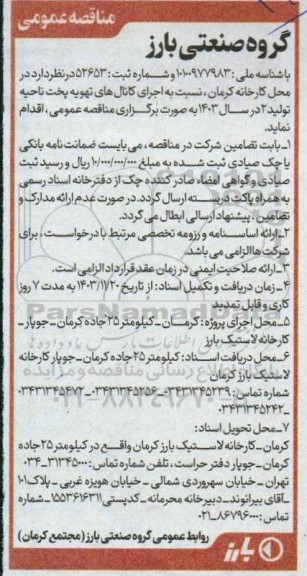 مناقصه عمومی
گروه صنعتی بارز
با شناسه ملی: ۱۰۱۰۰۹۷۷۹۸۳ و شماره ثبت: ۵۲۶۵۳ در نظر دارد در
محل کارخانه کرمان، نسبت به اجرای کانال های تهویه پخت ناحیه
تولید ۲ در سال ۱۴۰۳ به صورت برگزاری مناقصه عمومی، اقدام
نماید.
۱ـ بابت تضامین شرکت در مناقصه، می بایست ضمانت نامه بانکی
یا چک صیادی ثبت شده به مبلغ ۱۰/۰۰۰/۰۰۰/۰۰۰ ریال و رسید ثبت
صیادی و گواهی امضاء صادر کننده چک از دفترخانه اسناد رسمی
به همراه پاکت دربسته ارسال گردد. در صورت عدم ارائه مدارک و
تضامین، پیشنهاد ارسالی ابطال می گردد.
۲ـ ارائه اساسنامه و رزومه تخصصی مرتبط با درخواست، برای
شرکت ها الزامی می باشد.
۳ـ ارائه صلاحیت ایمنی در زمان عقد قرارداد الزامی است.
۴ـ زمان دریافت و تکمیل اسناد: از تاریخ ۱۴۰۳/۱۱/۲۰ به مدت ۷ روز
کاری و قابل تمدید
۵ـ محل اجرای پروژه: کرمان ـ کیلومتر ۲۵ جاده کرمان ـ جوپار ـ
کارخانه لاستیک بارز
۶ـ محل دریافت اسناد: کیلومتر ۲۵ جاده کرمان ـ جوپار کارخانه
لاستیک بارز کرمان
شماره تماس: ۰۳۴۳۱۳۴۵۲۳۹ـ ۰۳۴۳۱۳۴۵۲۵۶ـ ۰۳۴۳۱۳۴۵۴۷۲ـ
۰۳۴۳۱۳۴۵۲۴۲ـ
۷ـ محل تحویل اسناد:
کرمان ـ کارخانه لاستیک بارز کرمان واقع در کیلومتر ۲۵ جاده
کرمان ـ جوپار دفتر حراست، تلفن شماره تماس: ۳۱۳۴۵۰۰۰ـ۰۳۴
تهران ـ خیابان سهروردی شمالی ـ خیابان هویزه غربی ـ پلاک ۱۰۱
ـ آقای بیرانوند ـ دبیرخانه محرمانه ـ کدپستی ۱۵۵۳۶۱۶۳۱۱ ـ شماره
تماس: ۸۶۷۹۶۰۰۰ـ۰۲۱
روابط عمومی گروه صنعتی بارز (مجتمع کرمان)
بارز